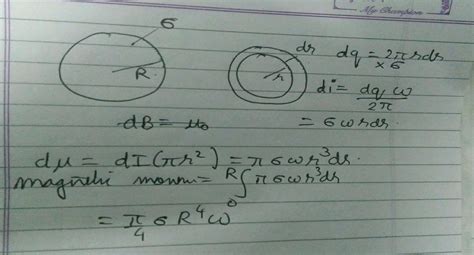 My Champion
σ
R
dr
r
dq = 2πrdr
× σ
di = dq ω
2π
= σωrdr.
dB = μ₀
dμ = dI(πr²) = πσωr³dr.
magnetic momen = R∫πσωr³dr
0
= π/4 σR⁴ω